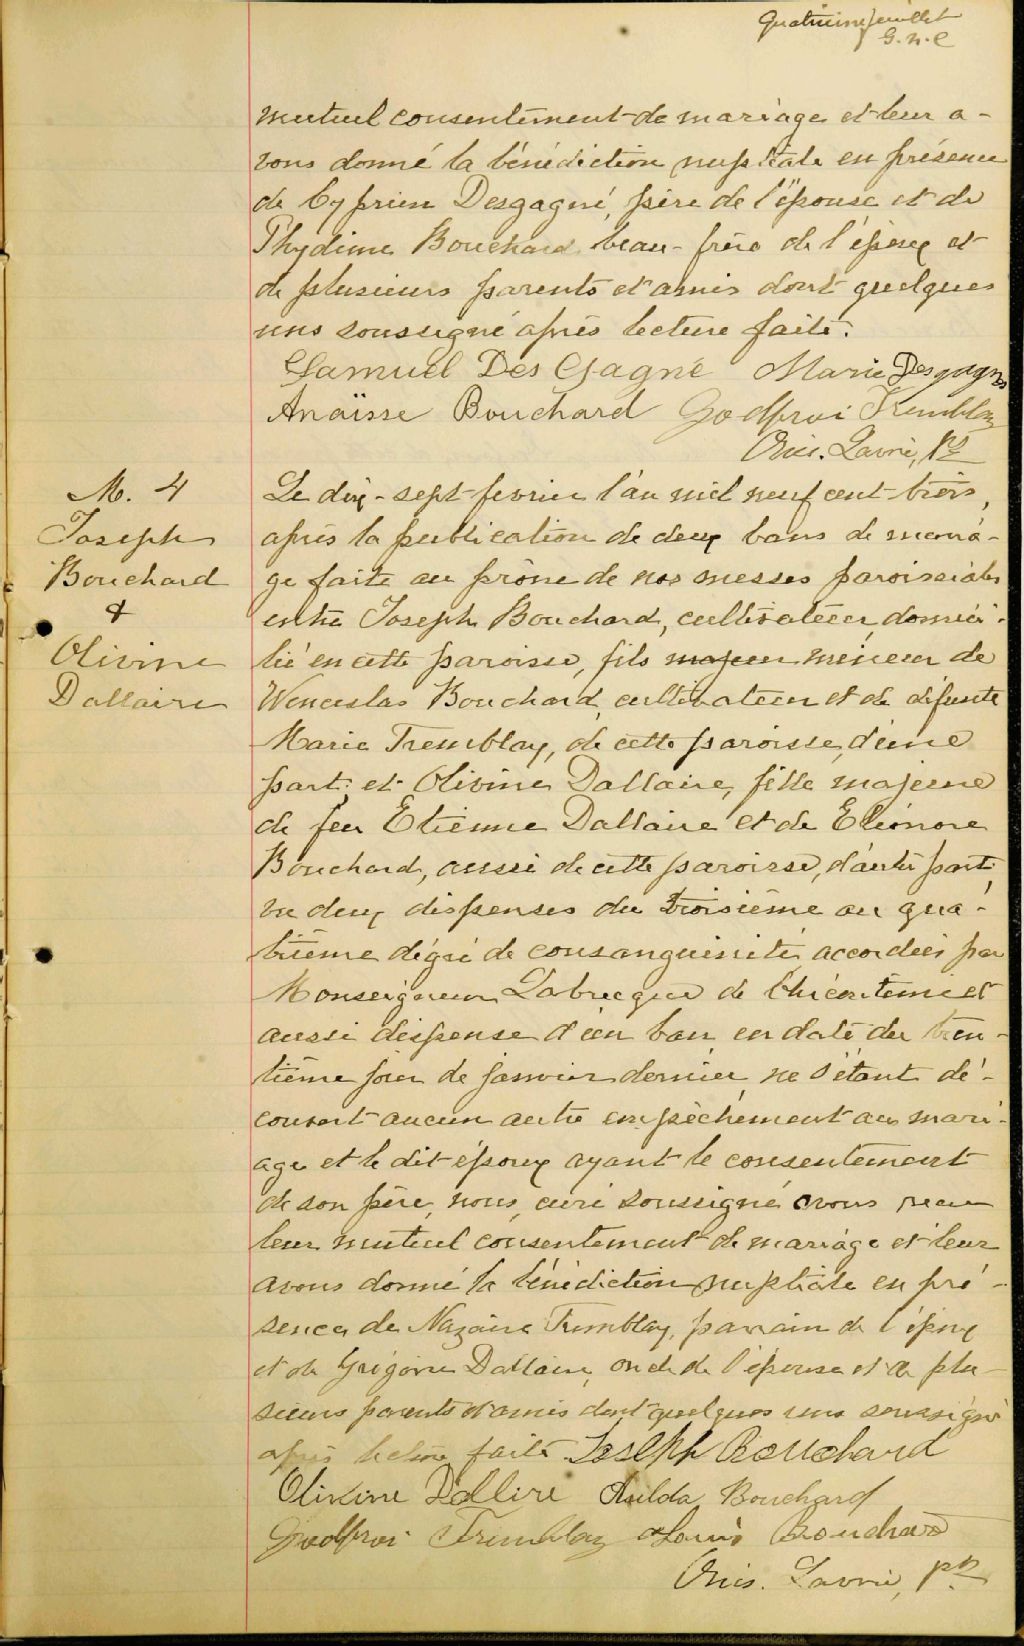 Quatrième feuillet
G. N. C
mutuel consentement de mariage et leur a-
vons donné la bénédiction nuptiale en présence
de Cyprien Desgagné, père de l'épouse et de
Phydime Bouchard beau-frère de l'époux et
de plusieurs parents et amis dont quelques
uns soussigné après lecture faite.
Samuel Des Gagné Marie Desgagnés
Anaïsse Bouchard Godfroi Tremblay
Lavoie, Ptre
M. 4
Joseph
Bouchard
&
Olivine
Dallaire
Le dix-sept fevrier l'an mil neuf cent trois,
après la publication de deux bans de maria-
ge faite au prône de nos messes paroissiales
entre Joseph Bouchard, cultivateur, domici-
lié en cette paroisse, fils majeur mineur de
Wenceslas Bouchard, cultivateur et de défunte
Marie Tremblay, de cette paroisse, d'une
part; et Olivine Dallaire, fille majeure
de feu Etienne Dallaire et de Eléonore
Bouchard, aussi de cette paroisse, d'autre part,
vu deux dispenses du troisième au qua-
trième dégré de consanguinité accordées par
Monseigneur Labrecque de Chicoutimi et
aussi dispense d'un ban en date du tren-
tième jour de janvier dernier, ne s'étant dé-
couvert aucun autre empèchement au mari-
age et le dit époux ayant le consentement
de son père, nous, curé soussigné avons recu
leur mutuel consentement de mariage et leur
avons donné la bénédiction nuptiale en pré-
sence de Nazaire Tremblay, parrain de l'époux
et de Grégoire Dallaire, oncle de l'épouse et de plu-
sieurs parents et amis dont quelques uns soussigné
après lecture faite. Joseph Bouchard
Olivine Dallire Aulda Bouchard
Godfroi Tremblay Louis Bouchard
Lavoie, Ptre